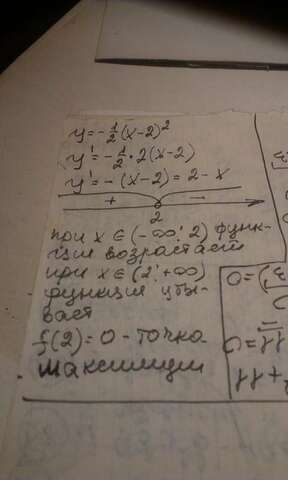 y = -1/2(x-2)²
y' = -1/2 · 2(x-2)
y' = -(x-2) = 2 - x
+ -
2
при x ∈ (-∞; 2) функ-
ция возрастает
при x ∈ (2; +∞)
функция убы-
вает
f(2) = 0 - точка
максимума